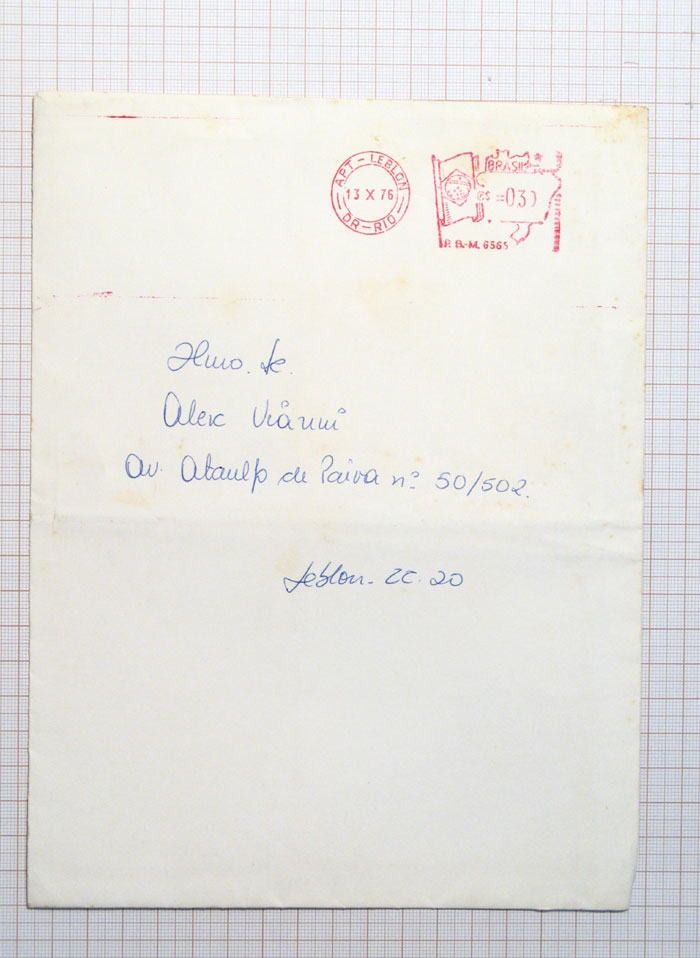 APT - LEBLON
13 X 76
DR - RIO
BRASIL
=030
P. B.-M. 6565
Ilmo. Sr.
Alex Vianni
Av. Ataulfo de Paiva nº 50/502.
Leblon - ZC. 20